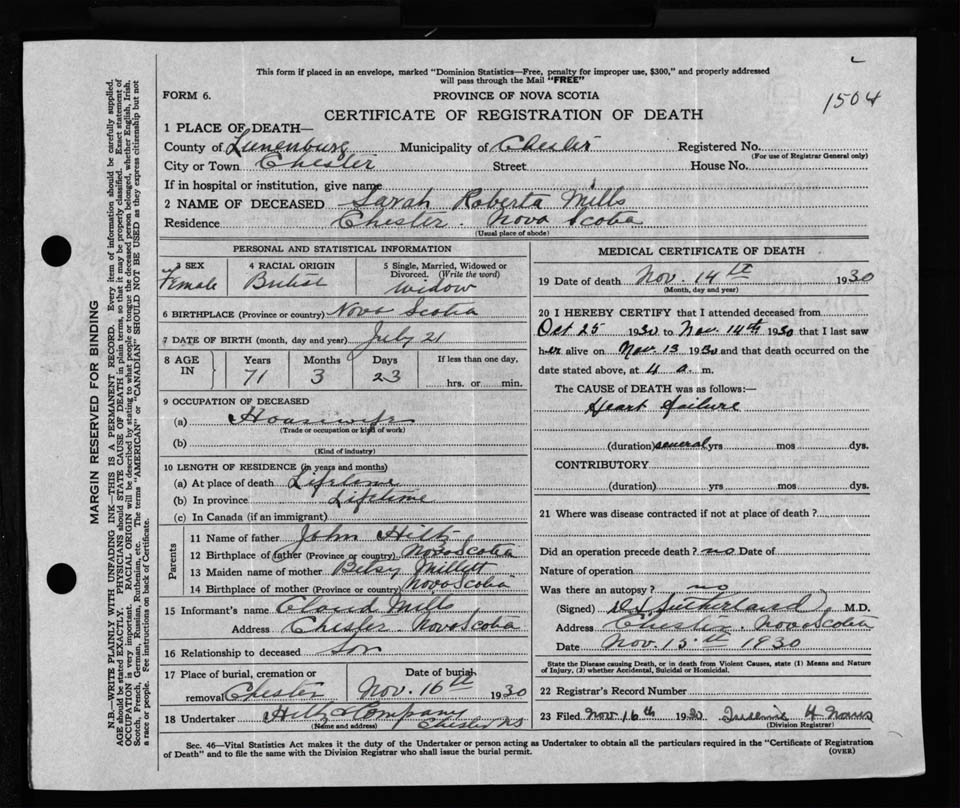 This form if placed in an envelope, marked "Dominion Statistics—Free, penalty for improper use, $300," and properly addressed
will pass through the Mail "FREE"
FORM 6.
PROVINCE OF NOVA SCOTIA
1504
CERTIFICATE OF REGISTRATION OF DEATH
1 PLACE OF DEATH—
County of Lunenburg Municipality of Chester Registered No.
(For use of Registrar General only)
City or Town Chester Street House No.
If in hospital or institution, give name
2 NAME OF DECEASED Sarah Roberta Mills
Residence Chester. Nova Scotia
(Usual place of abode)
PERSONAL AND STATISTICAL INFORMATION
3 SEX Female
4 RACIAL ORIGIN British
5 Single, Married, Widowed or
Divorced. (Write the word)
Widow
6 BIRTHPLACE (Province or country) Nova Scotia
7 DATE OF BIRTH (month, day and year) July 21
8 AGE IN
Years Months Days If less than one day,
71 3 23 hrs. or min.
9 OCCUPATION OF DECEASED
(a) Housewife
(Trade or occupation or kind of work)
(b)
(Kind of industry)
10 LENGTH OF RESIDENCE (in years and months)
(a) At place of death Lifetime
(b) In province Lifetime
(c) In Canada (if an immigrant)
Parents
11 Name of father John Hiltz
12 Birthplace of father (Province or country) Nova Scotia
13 Maiden name of mother Betsy Millett
14 Birthplace of mother (Province or country) Nova Scotia
15 Informant's name Claud Mills
Address Chester. Nova Scotia
16 Relationship to deceased Son
17 Place of burial, cremation or removal Chester
Date of burial Nov. 16th 1930
18 Undertaker Hiltz & Company
(Name and address) Chester NS
MEDICAL CERTIFICATE OF DEATH
19 Date of death Nov. 14th 1930
(Month, day and year)
20 I HEREBY CERTIFY that I attended deceased from
Oct 25 1930 to Nov. 14th 1930 that I last saw
her alive on Nov. 13 1930 and that death occurred on the
date stated above, at 4 a. m.
The CAUSE OF DEATH was as follows:—
Heart failure
(duration) several yrs mos dys.
CONTRIBUTORY
(duration) yrs mos dys.
21 Where was disease contracted if not at place of death?
Did an operation precede death? no Date of
Nature of operation
Was there an autopsy? no
(Signed) Sutherland, M.D.
Address Chester. Nova Scotia
Date Nov. 15th 1930
State the Disease causing Death, or in death from Violent Causes, state (1) Means and Nature
of Injury, (2) whether Accidental, Suicidal or Homicidal.
22 Registrar's Record Number
23 Filed Nov 16th 1930
(Division Registrar)
Sec. 46—Vital Statistics Act makes it the duty of the Undertaker or person acting as Undertaker to obtain all the particulars required in the "Certificate of Registration
of Death" and to file the same with the Division Registrar who shall issue the burial permit.
(OVER)
MARGIN RESERVED FOR BINDING
N.B.—WRITE PLAINLY WITH UNFADING INK—THIS IS A PERMANENT RECORD. Every item of information should be carefully supplied.
AGE should be stated EXACTLY. PHYSICIANS should STATE CAUSE OF DEATH in plain terms, so that it may be properly classified. Exact statement of
OCCUPATION is very important. RACIAL ORIGIN will be described by stating to what people or tongue the deceased person belonged, whether English, Irish,
Scotch, French, German, Russian, Ruthenian, etc. The terms "AMERICAN" or "CANADIAN" SHOULD NOT BE USED as they express citizenship but not
a race or people. See instructions on back of Certificate.